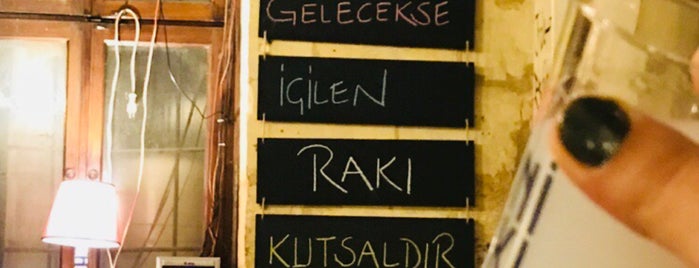 GELECEKSE
İÇİLEN
RAKI
KUTSALDIR